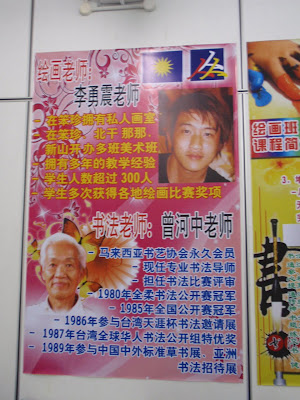 绘画老师:
李勇震老师
- 在笨珍拥有私人画室
- 在笨珍. 北干那那.
新山开办多班美术班
- 拥有多年的教学经验
- 学生人数超过 300人
- 学生多次获得各地绘画比赛奖项
书法老师: 曾河中老师
- 马来西亚书艺协会永久会员
- 现任专业书法导师
- 担任书法比赛评审
- 1980年全柔书法公开赛冠军
- 1985年全国公开赛冠军
- 1986年参与台湾天涯杯书法邀请展
- 1987年台湾全球华人书法公开组特优奖
- 1989年参与中国中外标准草书展. 亚洲
书法招待展
绘画班
课程简